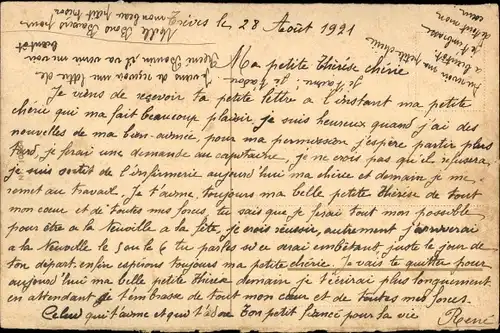 Trèves le 28 Août 1921
Ma petite Thérèse chérie
Je viens de recevoir ta petite lettre a l'instant ma petite
chérie qui ma fait beaucoup plaisir, je suis heureux quand j'ai des
nouvelles de ma bien-aimée, pour ma permission j'espère partir plus
tard, je ferai une demande au capitaine, je ne crois pas qu'il refusera,
je suis sortit de l'infirmerie aujourd'hui ma chérie et demain je me
remet au travail. Je t'aime toujours ma belle petite Thérèse de tout
mon cœur et de toutes mes forces, tu sais que je ferai tout mon possible
pour être a la Neuville a la fête, je crois réussir, autrement j'arriverai
a la Neuville le 5 ou le 6 tu parles si ce serai embêtant juste le jour de
ton départ, enfin espérons toujours ma petite chérie. Je vais te quitter pour
aujourd'hui ma belle petite Thérèse demain je t'écrirai plus longuement
en attendant je t'embrasse de tout mon cœur et de toutes mes forces.
Celui qui t'aime et qui t'adore ton petit fiancé pour la vie
René
Mille Bons Baisers pour
mon beau petit trésor
Je viens de recevoir une lettre de
René Bonin et va venir me voir
bientôt
Je t'aime, je t'adore
a bientôt ma petite chérie
je t'embrasse
de tout mon
cœur